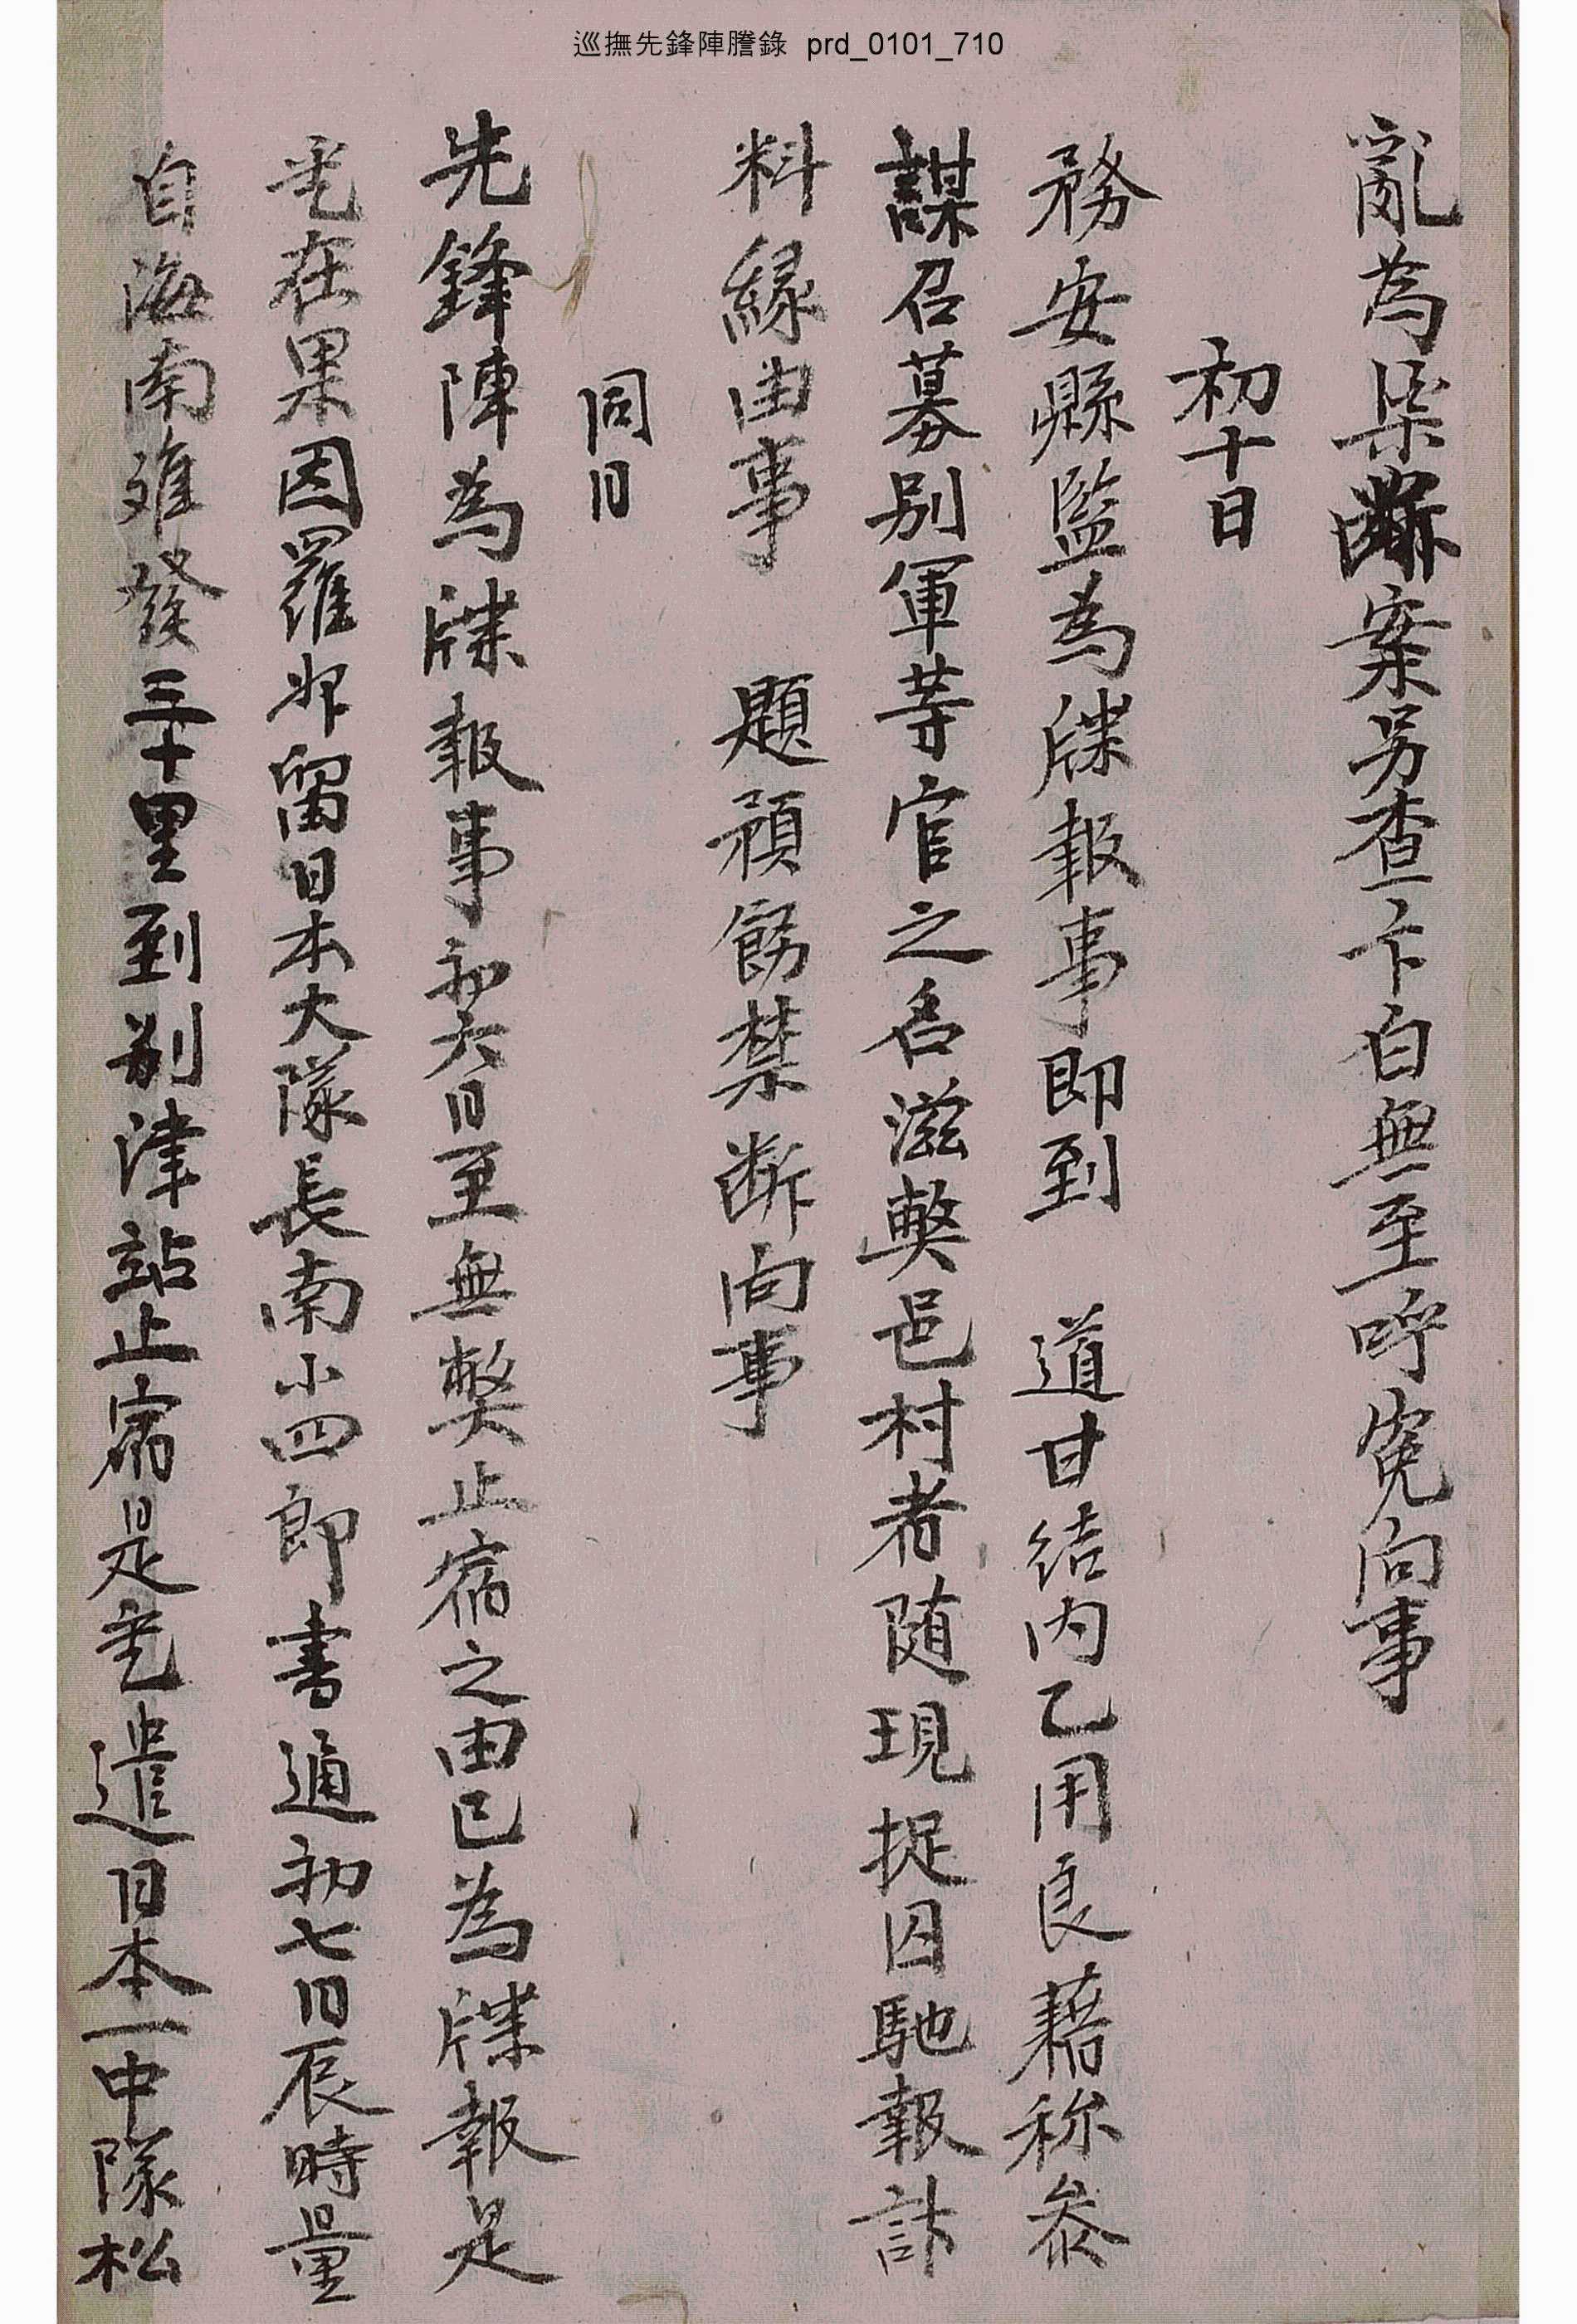 巡撫先鋒陣謄錄 prd_0101_710
亂為杲斷案另查卞白無至呼寃向事
初十日
務安縣監為牒報事即到 道甘結內乙用良藉称叅
謀召募别軍等官之名滋獘邑村者随現捉囚馳報計
料緣由事 題預飭禁断向事
同日
先鋒陣為牒報事初六日至無獘止宿之由已為牒報是
乎在果因羅州留日本大隊長南小四郎書通初七日辰時量
自海南離發三十里到别津站止宿是乎遣日本一中隊松